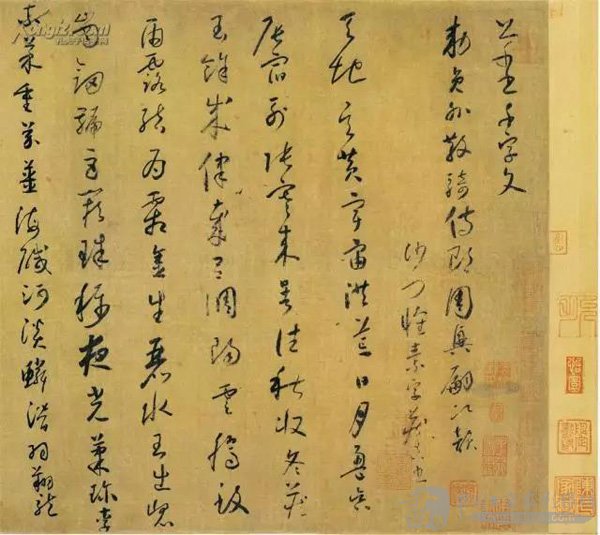 千字文
勅員外散騎侍郎周興嗣次韻
沙門懷素字藏真書
天地玄黃宇宙洪荒日月盈昃
辰宿列張寒來暑往秋收冬藏
閏餘成律歲呂調陽雲騰致
雨露結為霜金生麗水玉出崑
崗劍號巨闕珠稱夜光菓珍李
柰菜重芥薑海鹹河淡鱗潛羽翔龍